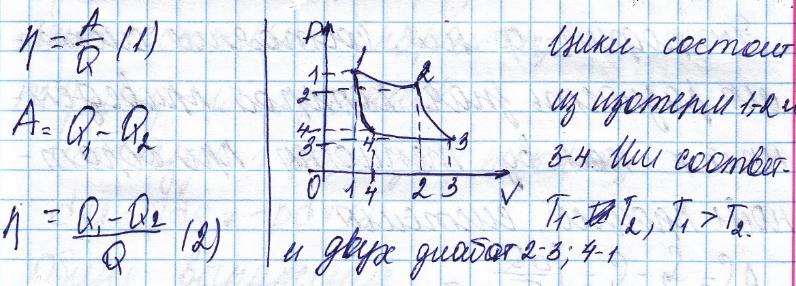 η = A/Q (1)
A = Q₁ - Q₂
η = Q₁ - Q₂/Q (2)
P
1
2
4
3
1
2
4
3
0
1 4 2 3 V
Цикл состоит
из изотерм 1-2 и
3-4. Им соответ-
T₁ - T₂, T₁ > T₂.
и двух диабат 2-3; 4-1